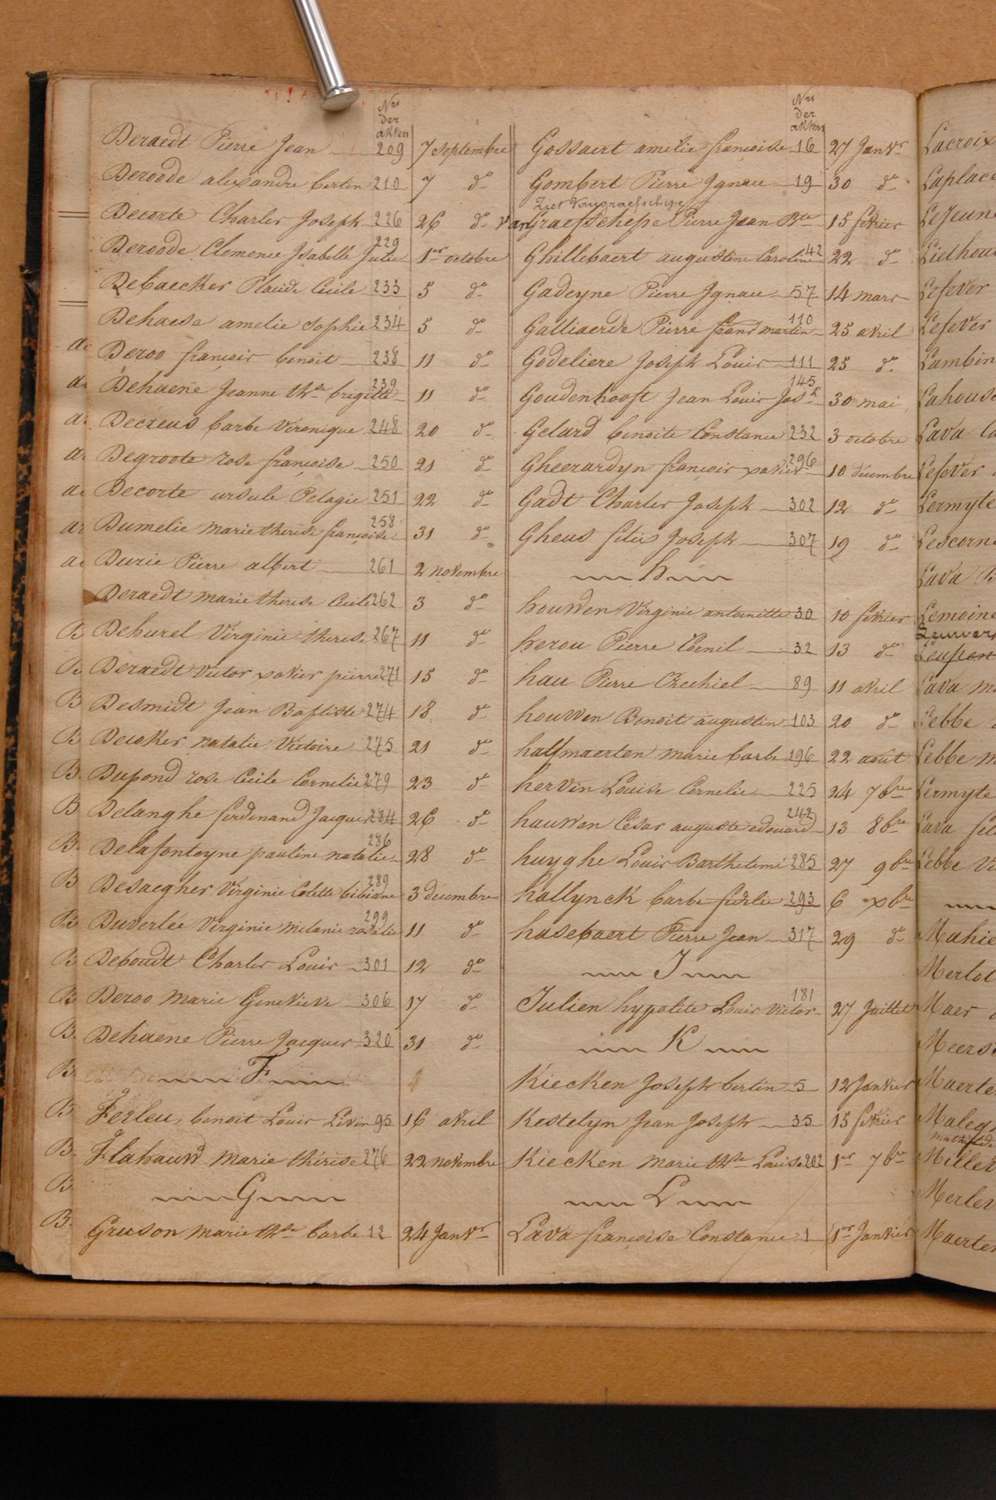 Nrs der akten
Deraedt Pierre Jean 209 7 septembre
Deroode alexandre bertin 210 7 do
Decorte Charles Joseph 226 26 do
Deroode Clemence Isabelle Julie 229 1er octobre
Debaecker Placide Cecile 233 5 do
Dehaese amelie sophie 234 5 do
Deroo françois benoit 238 11 do
Dehaene Jeanne thse brigitte 239 11 do
Deceeus barbe veronique 248 20 do
Degroote rose françoise 250 21 do
Decorte ursule Pelagie 251 22 do
Dumelie marie therese françoise 258 31 do
Durie Pierre albert 261 2 novembre
Deraedt marie therese Cecile 262 3 do
Dehurel Virginie therese 267 11 do
Deraedt victor xavier pierre 271 15 do
Desmidt Jean Baptiste 274 18 do
Decoker natalie Victoire 275 21 do
Dupond rose Cecile Cornelie 279 23 do
Delanghe ferdinand Jacques 284 26 do
Delafonteyne pauline natalie 286 28 do
Desaegher Virginie Colette bibiane 289 3 decembre
Duverlie Virginie melanie rosalie 299 11 do
Deboudt Charles Louis 301 12 do
Deroo marie Genevieve 306 17 do
Dehaene Pierre Jacques 320 31 do
F
Ferleu benoit Louis Livin 95 16 avril
Flahauw marie thérèse 276 22 novembre
G
Gruson marie thse barbe 12 24 Janvr
Nrs der akten
Gossaert amelie françoise 16 27 Janvr
Gombert Pierre Ignace 19 30 do
Ziet Vangraefschepe
van Graefschepe Pierre Jean Bte 15 fevrier
Ghillebaert augustine Caroline 42 22 do
Gadeyne Pierre Ignace 57 14 mars
Galliaerde Pierre frans martin 110 25 avril
Godeliere Joseph Louis 111 25 do
Goudenhooft Jean Louis Josh 145 30 mai
Gelard benoite Constance 232 3 octobre
Gheerardyn françois xavier 296 10 décembre
Gadt Charles Joseph 302 12 do
Gheus felix Joseph 307 19 do
h
houwen Virginie antoinette 30 10 fevrier
herou Pierre Corneil 32 13 do
hau Pierre Ezechiel 89 11 avril
houwen Benoit augustin 103 20 do
halfmaerten marie barbe 196 22 août
hervin Louise Cornelie 225 24 7bre
hauwen César auguste edouard 242 13 8bre
huyghe Louis Barthelemi 285 27 9bre
hallynck barbe sixtie 293 6 xbre
hasebaert Pierre Jean 317 29 do
I
Iulien hypolite Louis victor 181 27 Juillet
K
Kiecken Joseph bertin 5 12 Janvier
Kestelyn Jean Joseph 35 13 fevrier
Kiecken marie thse Louise 202 1er 7bre
L
Lava françoise Constance 1 1er Janvier